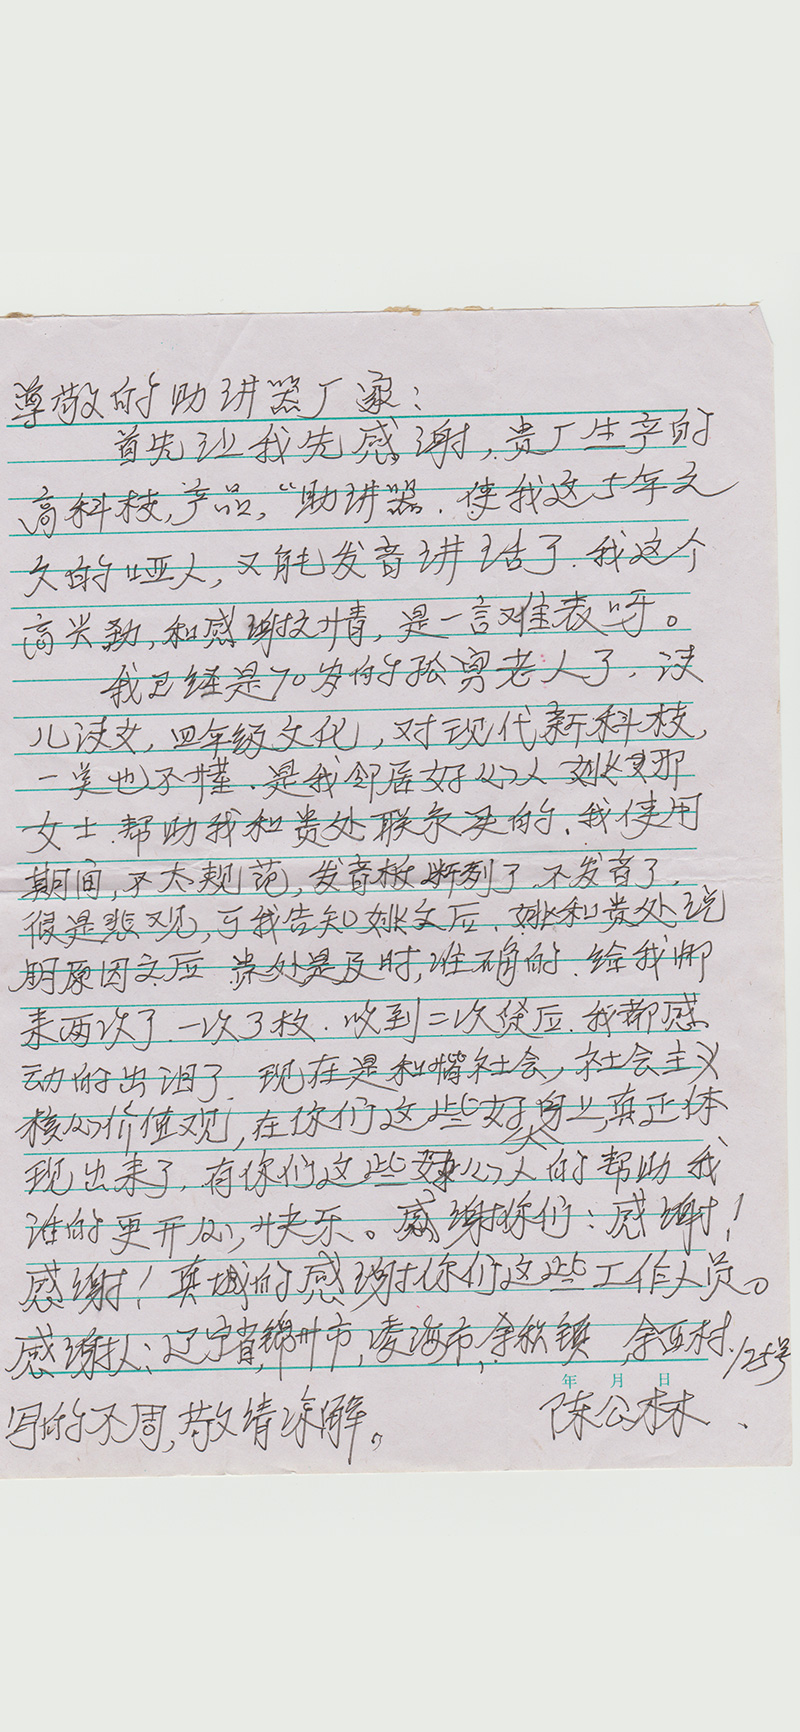 尊敬的助讲器厂家：
首先让我先感谢，贵厂生产的
高科枝，产品，“助讲器．使我这5年文
久的哑人，又能发音讲话了．我这个
高兴劲，和感谢之情，是一言难表呀。
我已经是70岁的孤寡老人了．没
儿没女，四年级文化，对现代新科枝，
一点也不懂．是我邻居好心人 姚
女士．帮助我和贵处联系买的．我使用
期间，不太规范，发音板断裂了．不发音了．
很是悲观，可我告知姚女后．姚和贵处说
明原因之后 贵处是及时，准确的．给我邮
来两次了．一次3枚．收到二次货后．我都感
动的出泪了．现在是和谐社会，社会主义
核心价值观，在你们这些好 身上，真正体
现出来了．有你们这些好心人的帮助 我
谁的更开心，快乐。感谢你们：感谢！
感谢！真城的感谢你们这些工作人员。
感谢人：辽宁省，锦州市，凌海市，余积镇 ，余 村．125号
年 月 日
写的不周，敬请凉解。 陈公林．